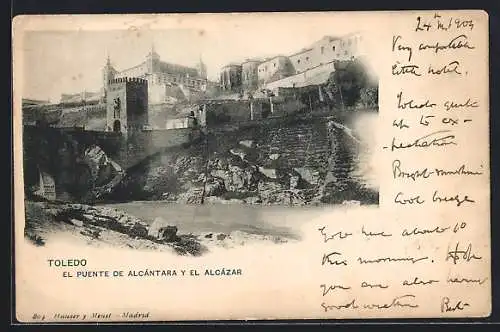 24th 1903
Very comfortable
little hotel.
Toledo quite
up to ex-
-pectation
Bright sunshine
Cool breeze
Got here about 10
this morning. Hope
you are also having
good weather Best
TOLEDO
EL PUENTE DE ALCÁNTARA Y EL ALCÁZAR
804 Hauser y Menet - Madrid